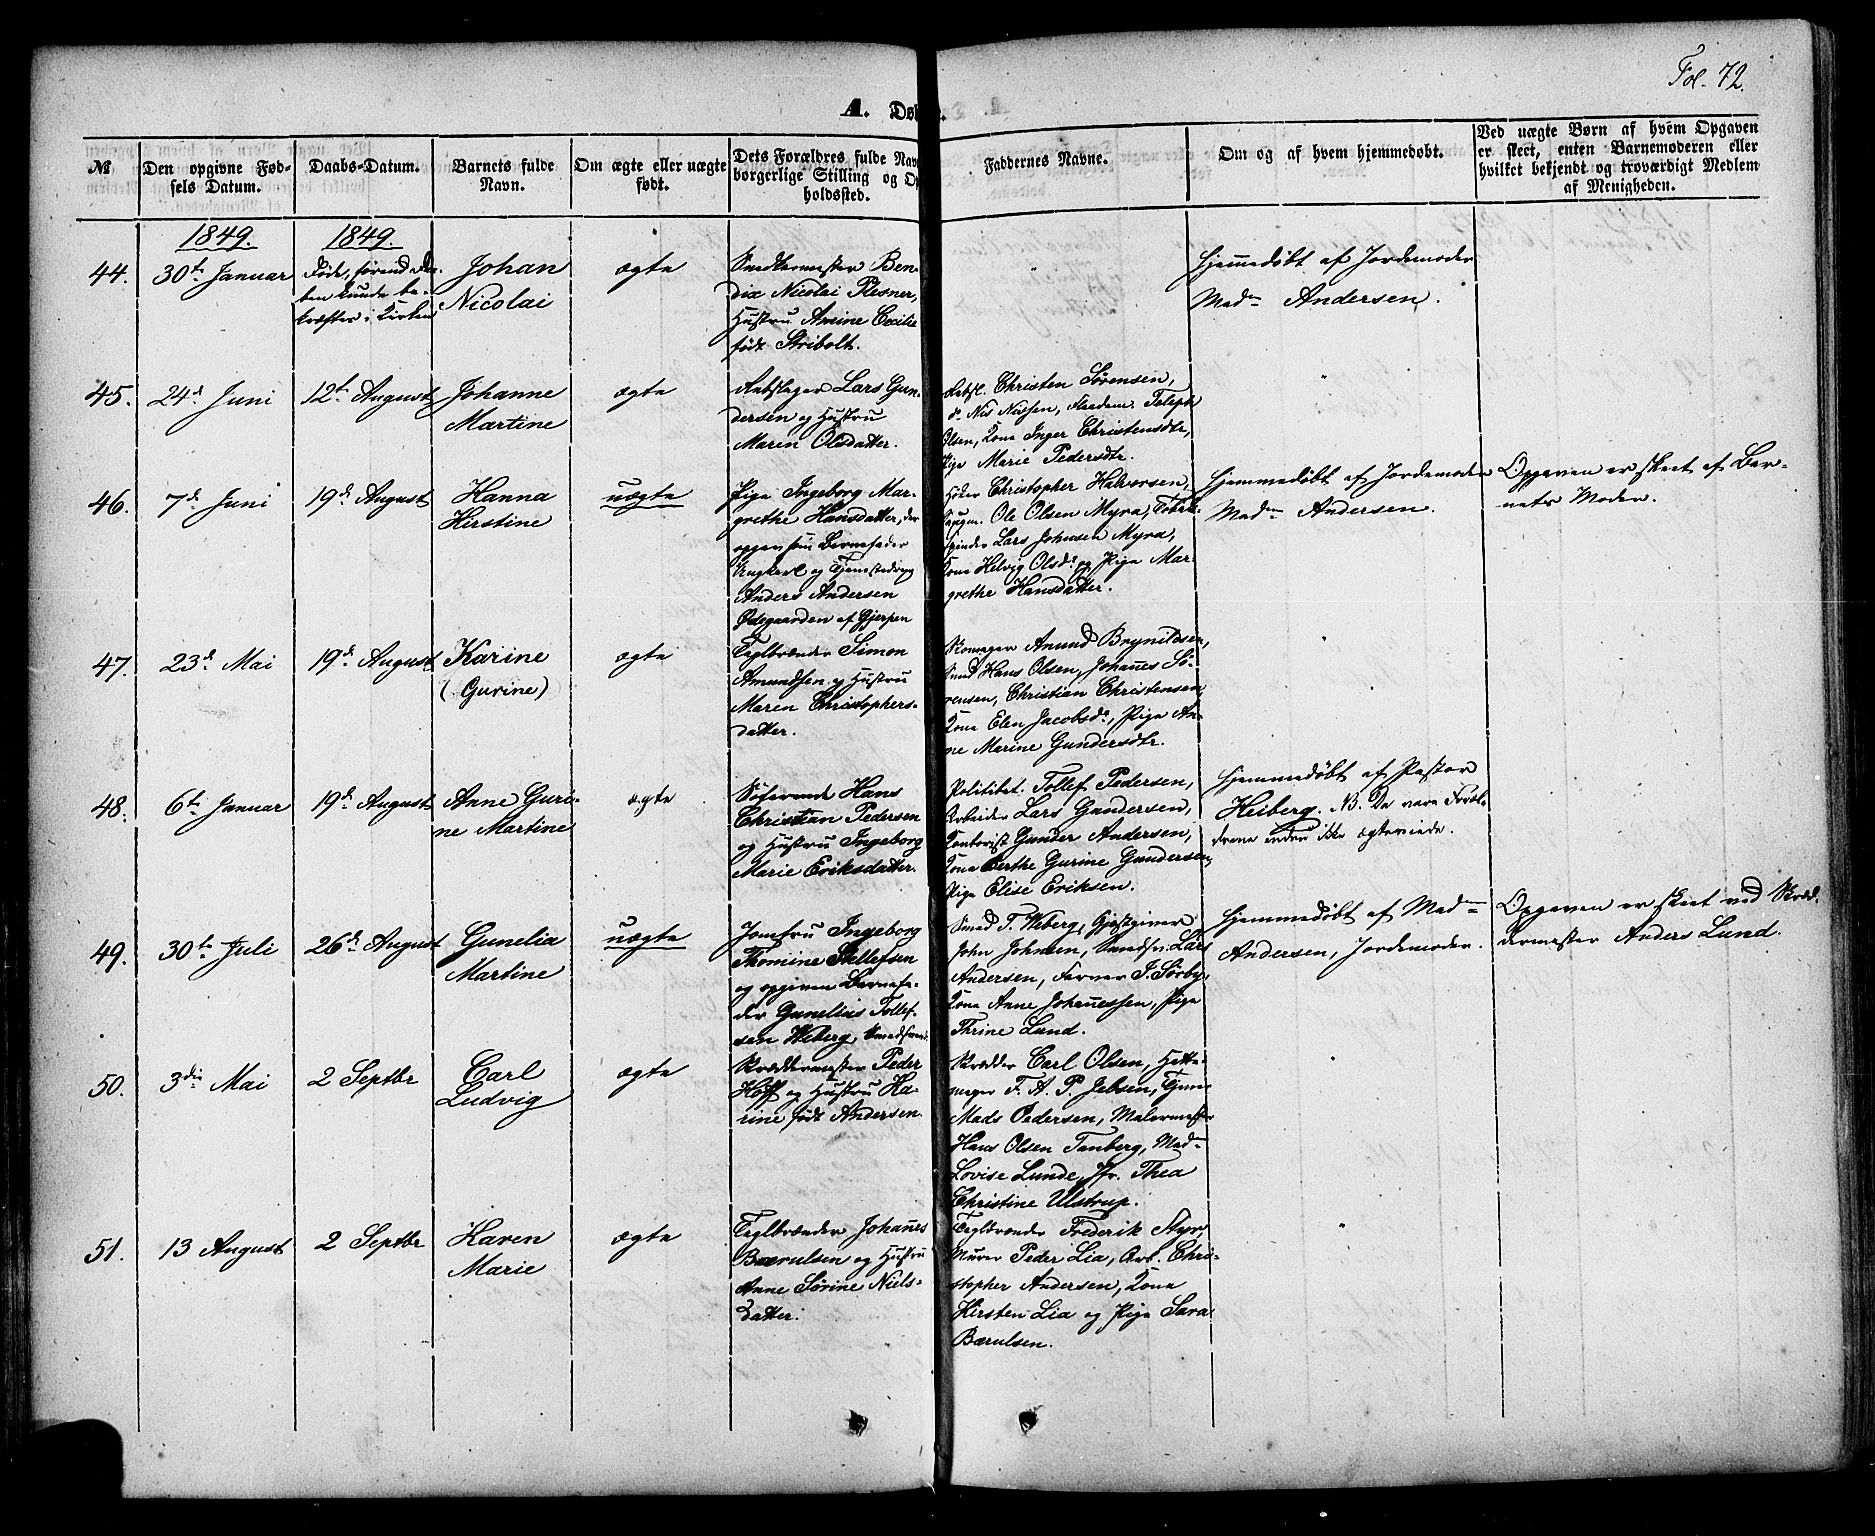 Fol. 72.
A. Døb
№
Den opgivne Fød-
sels Datum.
Daabs-Datum.
Barnets fulde
Navn.
Om ægte eller uægte
født.
Dets Forældres fulde Nav
borgerlige Stilling og Op
holdssted.
Faddernes Navne.
Om og af hvem hjemmedøbt.
Ved uægte Børn af hvem Opgaven
er skeet, enten Barnemoderen eller
hvilket bekjendt og troværdigt Medlem
af Menigheden.
1849.
1849.
44.
30te Januar
Døde, førend Daa-
ben kunde be-
kræftes i Kirken
Johan
Nicolai
ægte
Snedkermester Ben-
dix Nicolai Plesner,
Hustru Cecilie
født Stribolt.
Hjemmedøbt af Jordemoder
Madm Andersen.
45.
24de Juni
12te August
Johanne
Martine
ægte
Rebslager Lars Gun-
dersen og Hustru
Maren Olsdatter.
Rebsl. Christen Sørensen,
do Nis Nissen,
Olsen, Kone Inger Christensdtr,
Pige Marie Pedersdtr.
46.
7de Juni
19de August
Hanna
Kirstine
uægte
Pige Ingeborg Mar-
grethe Hansdatter, der
opgav som Barnefader
Ungkarl og Tjenestedreng
Anders Andersen
Ødegaarden af Gjerpen
Høker Christopher Halvorsen,
Ole Olsen Myra,
spinder Lars Johnsen Myra,
Kone Helvig Olsdr og Pige Mar-
grethe Hansdatter.
Hjemmedøbt af Jordemoder
Madm Andersen.
Opgaven er skeet af Bar-
nets Moder.
47.
23de Mai
19de August
Karine
(Gurine)
ægte
Teglbrænder Simon
Amundsen og Hustru
Maren Christophers-
datter.
Skomager Amund Brynildsen,
Smed Hans Olsen, Johannes Sø-
rensen, Christian Christensen
Kone Elen Jacobsdr, Pige An-
ne Marine Gundersdtr.
48.
6te Januar
19de August
Anne Guri-
ne Martine
ægte
Søfarende Hans
Christian Pedersen
og Hustru Ingeborg
Marie Eriksdatter.
Politibet. Tollef Pedersen,
Arbeider Lars Gundersen,
Kontorist Gunder Andersen,
Kone Berthe Gurine Gundersen,
Pige Elise Eriksen.
Hjemmedøbt af Pastor
Heiberg. NB. Da vare Foræl-
drene endnu ikke ægteviede.
49.
30te Juli
26de August
Gunelia
Martine
uægte
Jomfru Ingeborg
Thomine Stellefsen
og opgiven Barnefa-
der Gunelius Tollef-
sen Weberg, Smedsvend.
Smed T. Weberg, Gjæstgiver
John Johnsen, Smedsv. Lars
Andersen, Farver J. Sørby,
Kone Anne Johannessen, Pige
Thrine Lund.
Hjemmedøbt af Madm
Andersen, Jordemoder.
Opgaven er skeet ved Skræd-
dermester Anders Lund.
50.
3die Mai
2 Septbr
Carl
Ludvig
ægte
Skræddermester Peder
Hoff og Hustru Ka-
rine født Andersen.
Skrædder Carl Olsen, Hatte-
mager F. A. P. Jebsen,
Mads Pedersen, Malermester
Hans Olsen Tanberg, Madm
Lovise Lunde, Jfr. Thea
Christine Ulstrup.
51.
13 August
2 Septbr
Karen
Marie
ægte
Teglbrænder Johannes
Bærulsen og Hustru
Anne Sørine Niels-
datter.
Teglbrænder Frederik Styr,
Murer Peder Lia, Arb. Chri-
stopher Andersen, Kone
Kirsten Lia og Pige Sara
Bærulsen.